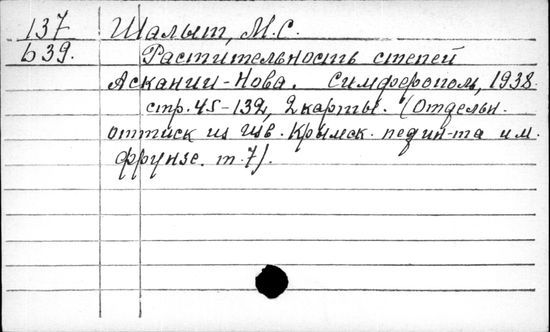 137 Шалыт, М.С.
639. Растительность степей
Аскании-Нова. Симферополь, 1938.
стр. 45-132, 2 карты. (Отдельн.
оттиск из Изв. Крымск. педин-та им.
Фрунзе. т. 7).